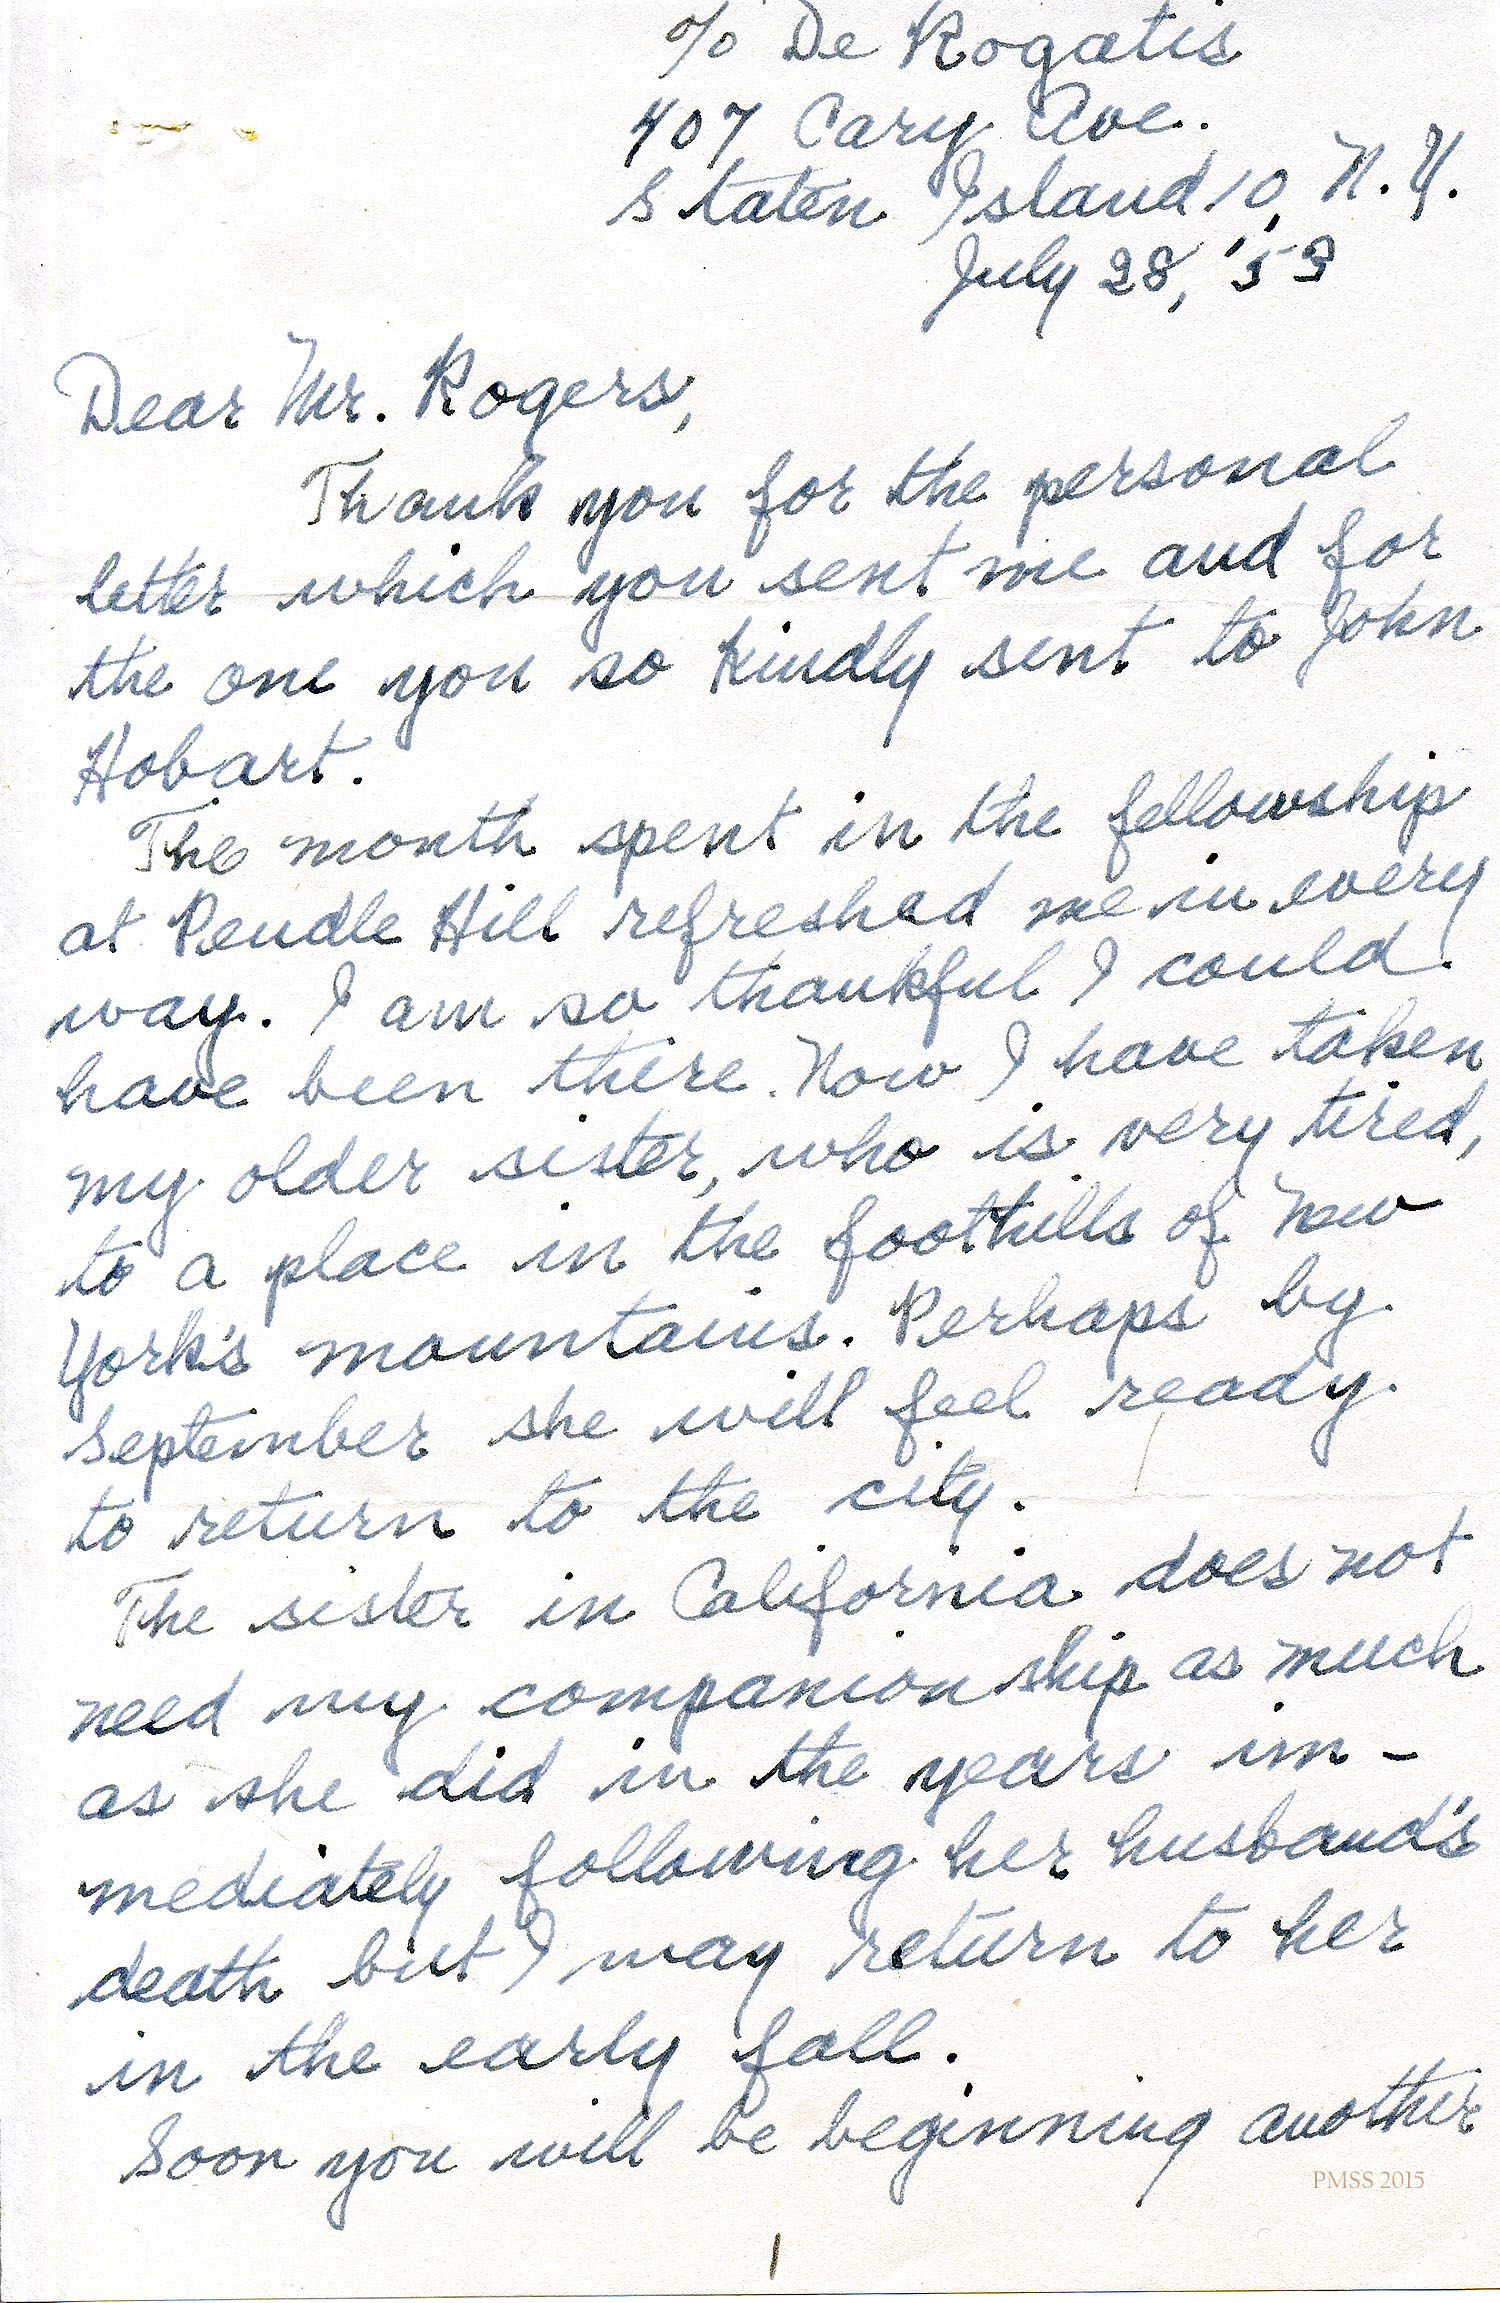 c/o De Rogatis
407 Cary Ave.
Staten Island 10, N.Y.
July 28, '53
Dear Mr. Rogers,
Thank you for the personal
letter which you sent me and for
the one you so kindly sent to John
Hobart.
The month spent in the fellowship
at Pendle Hill refreshed me in every
way. I am so thankful I could
have been there. Now I have taken
my older sister, who is very tired,
to a place in the foothills of New
York's mountains. Perhaps by
September she will feel ready
to return to the city.
The sister in California does not
need my companionship as much
as she did in the years im-
mediately following her husband's
death but I may return to her
in the early fall.
Soon you will be beginning another
PMSS 2015
1